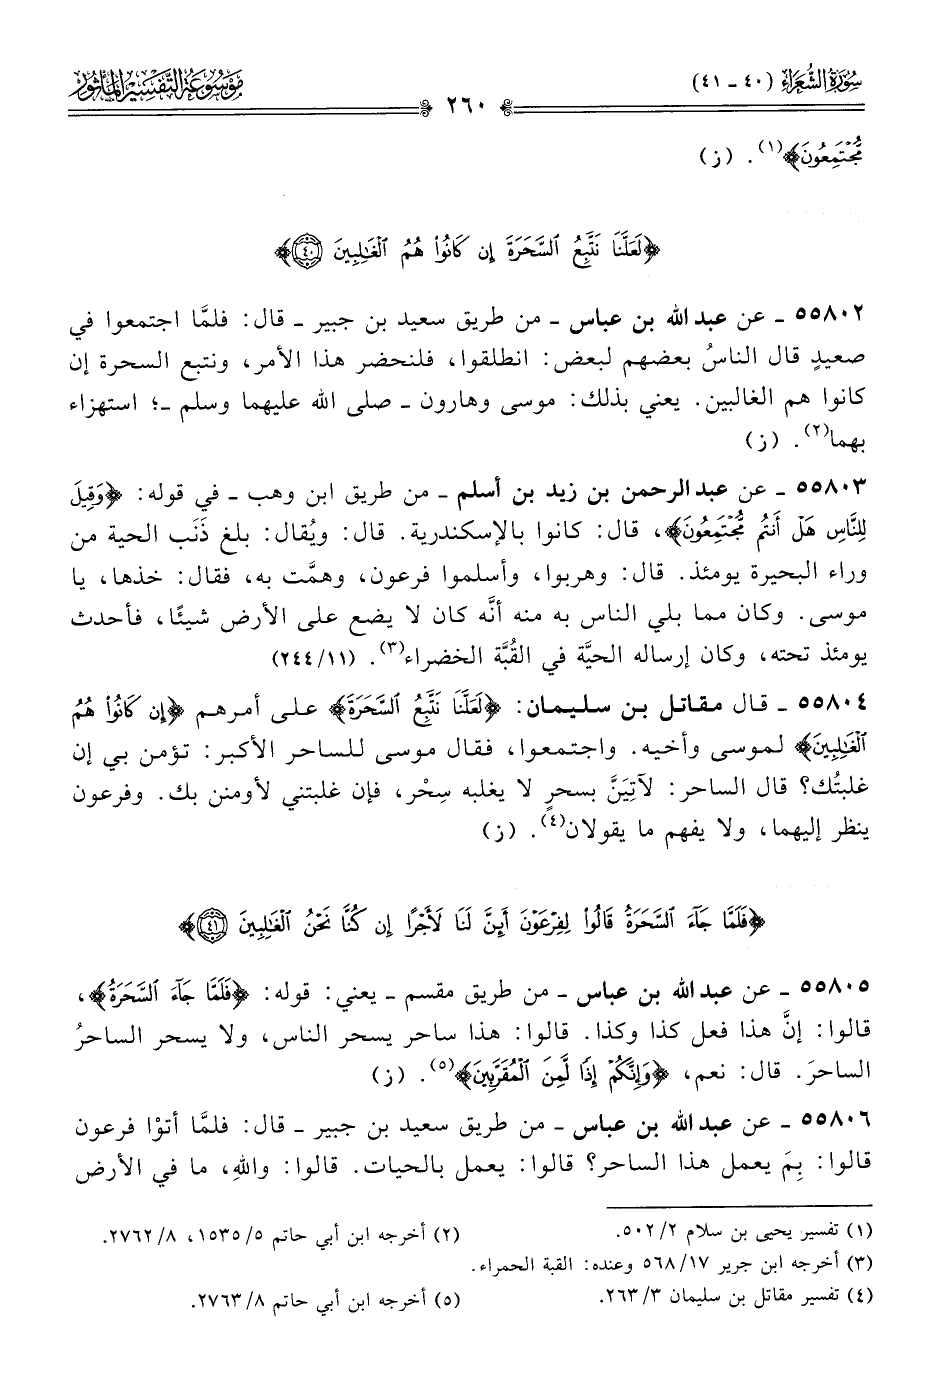 سُورَةُ الشُّعَرَاءِ (٤٠ - ٤١)
٢٦٠
مَوْسُوعَةُ التَّفْسِيرِ المَأْثُور
مُّجْتَمِعُونَ﴾(١). (ز)
﴿لَعَلَّنَا نَتَّبِعُ ٱلسَّحَرَةَ إِن كَانُوا۟ هُمُ ٱلْغَـٰلِبِينَ ٤٠﴾
٥٥٨٠٢ ـ عن عبد الله بن عباس ـ من طريق سعيد بن جبير ـ قال: فلمَّا اجتمعوا في
صعيدٍ قال الناسُ بعضهم لبعض: انطلقوا، فلنحضر هذا الأمر، ونتبع السحرة إن
كانوا هم الغالبين. يعني بذلك: موسى وهارون ـ صلى الله عليهما وسلم ـ؛ استهزاء
بهما(٢). (ز)
٥٥٨٠٣ ـ عن عبد الرحمن بن زيد بن أسلم ـ من طريق ابن وهب ـ في قوله: ﴿وَقِيلَ
لِلنَّاسِ هَلْ أَنتُم مُّجْتَمِعُونَ﴾، قال: كانوا بالإسكندرية. قال: ويُقال: بلغ ذَنَب الحية من
وراء البحيرة يومئذ. قال: وهربوا، وأسلموا فرعون، وهمَّت به، فقال: خذها، يا
موسى. وكان مما بلي الناس به منه أنَّه كان لا يضع على الأرض شيئًا، فأحدث
يومئذ تحته، وكان إرساله الحيَّة في القُبَّة الخضراء(٣). (٢٤٤/١١)
٥٥٨٠٤ ـ قال مقاتل بن سليمان: ﴿لَعَلَّنَا نَتَّبِعُ ٱلسَّحَرَةَ﴾ على أمرهم ﴿إِن كَانُوا۟ هُمُ
ٱلْغَـٰلِبِينَ﴾ لموسى وأخيه. واجتمعوا، فقال موسى للساحر الأكبر: تؤمن بي إن
غلبتُك؟ قال الساحر: لآتِيَنَّ بسحرٍ لا يغلبه سِحْر، فإن غلبتني لأومنن بك. وفرعون
ينظر إليهما، ولا يفهم ما يقولان(٤). (ز)
﴿فَلَمَّا جَآءَ ٱلسَّحَرَةُ قَالُوا۟ لِفِرْعَوْنَ أَئِنَّ لَنَا لَأَجْرًا إِن كُنَّا نَحْنُ ٱلْغَـٰلِبِينَ ٤١﴾
٥٥٨٠٥ ـ عن عبد الله بن عباس ـ من طريق مقسم ـ يعني: قوله: ﴿فَلَمَّا جَآءَ ٱلسَّحَرَةُ﴾،
قالوا: إنَّ هذا فعل كذا وكذا. قالوا: هذا ساحر يسحر الناس، ولا يسحر الساحرُ
الساحرَ. قال: نعم، ﴿وَإِنَّكُمْ إِذًا لَّمِنَ ٱلْمُقَرَّبِينَ﴾(٥). (ز)
٥٥٨٠٦ ـ عن عبد الله بن عباس ـ من طريق سعيد بن جبير ـ قال: فلمَّا أتوْا فرعون
قالوا: بِمَ يعمل هذا الساحر؟ قالوا: يعمل بالحيات. قالوا: واللهِ، ما في الأرض
(١) تفسير يحيى بن سلام ٢/ ٥٠٢.
(٢) أخرجه ابن أبي حاتم ٥/ ١٥٣٥، ٨/ ٢٧٦٢.
(٣) أخرجه ابن جرير ١٧/ ٥٦٨ وعنده: القبة الحمراء.
(٤) تفسير مقاتل بن سليمان ٣/ ٢٦٣.
(٥) أخرجه ابن أبي حاتم ٨/ ٢٧٦٣.